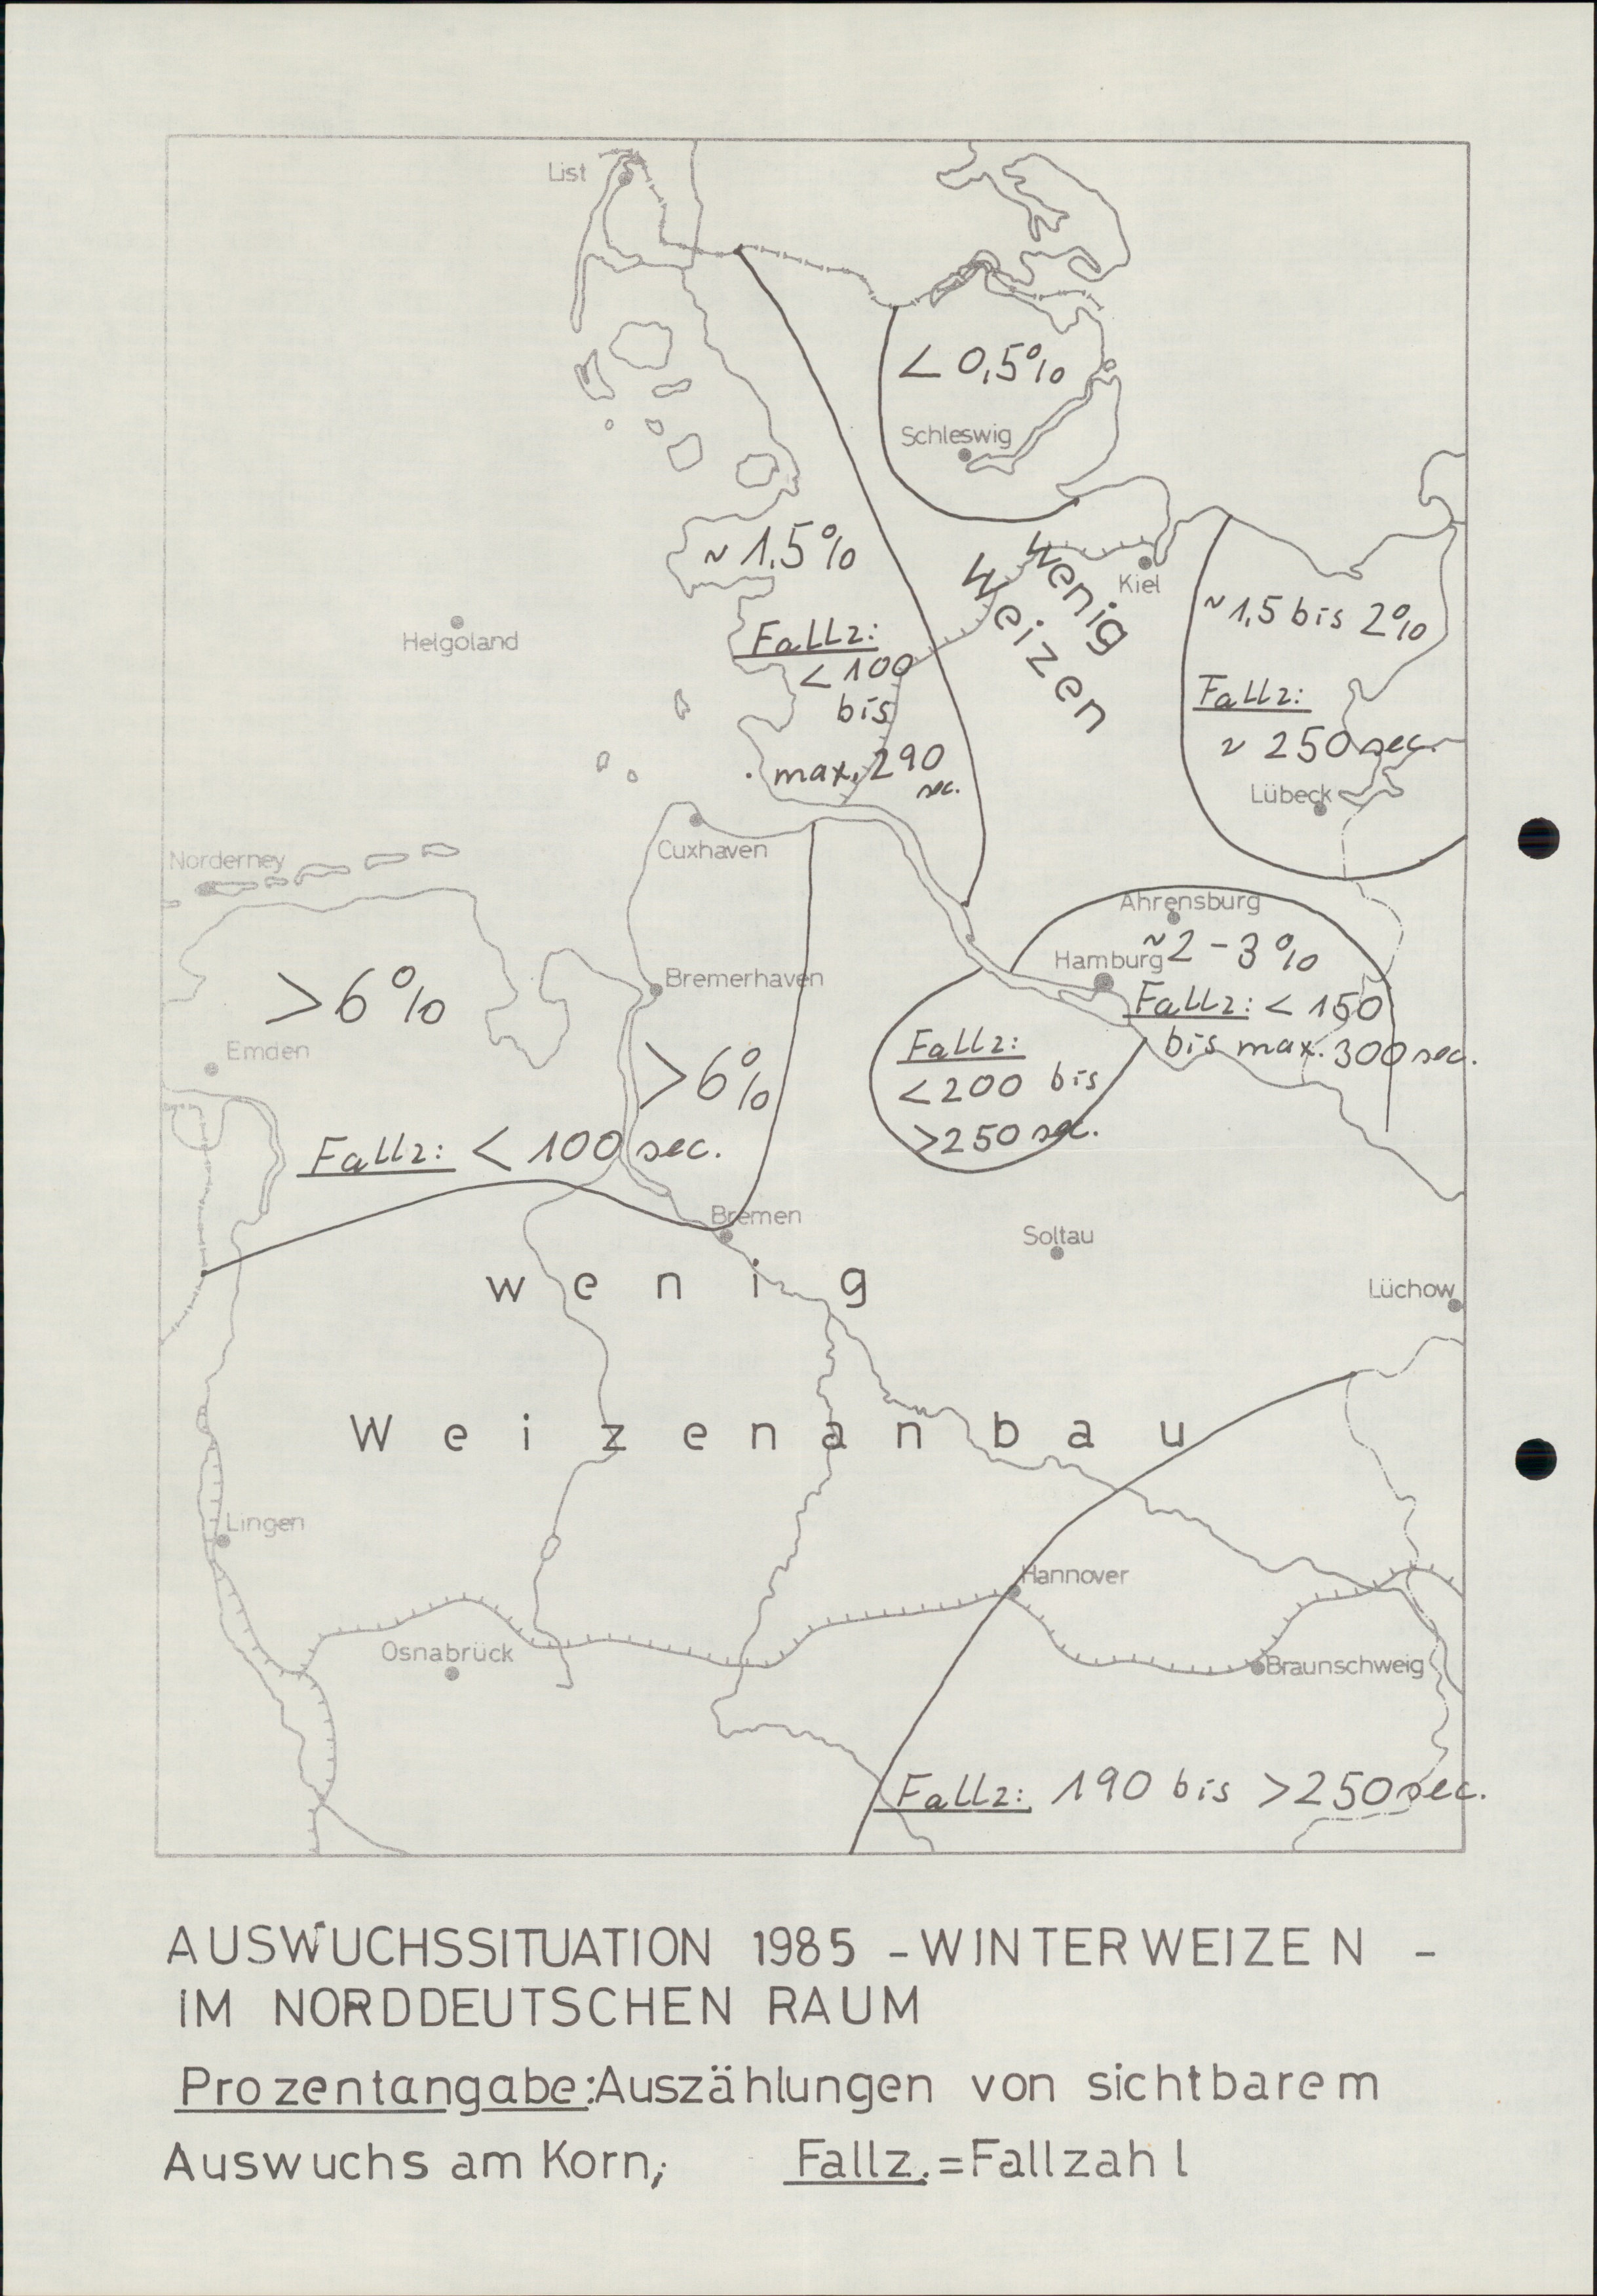 List
< 0,5%
Schleswig
~ 1,5%
Wenig
Weizen
Kiel
~1,5 bis 2%
Helgoland
Fallz:
< 100
bis
max. 290
sec.
Fallz:
~ 250 sec.
Lübeck
Cuxhaven
Norderney
Ahrensburg
~2-3%
Hamburg
Fallz: < 150
bis max. 300 sec.
>6%
Bremerhaven
Emden
>6%
Fallz:
<200 bis
>250 sec.
Fallz: < 100 sec.
Bremen
Soltau
Lüchow
wenig
Weizenanbau
Lingen
Hannover
Osnabrück
Braunschweig
Fallz: 190 bis >250 sec.
AUSWUCHSSITUATION 1985 - WINTERWEIZEN -
IM NORDDEUTSCHEN RAUM
Prozentangabe: Auszählungen von sichtbarem
Auswuchs am Korn; Fallz. = Fallzahl